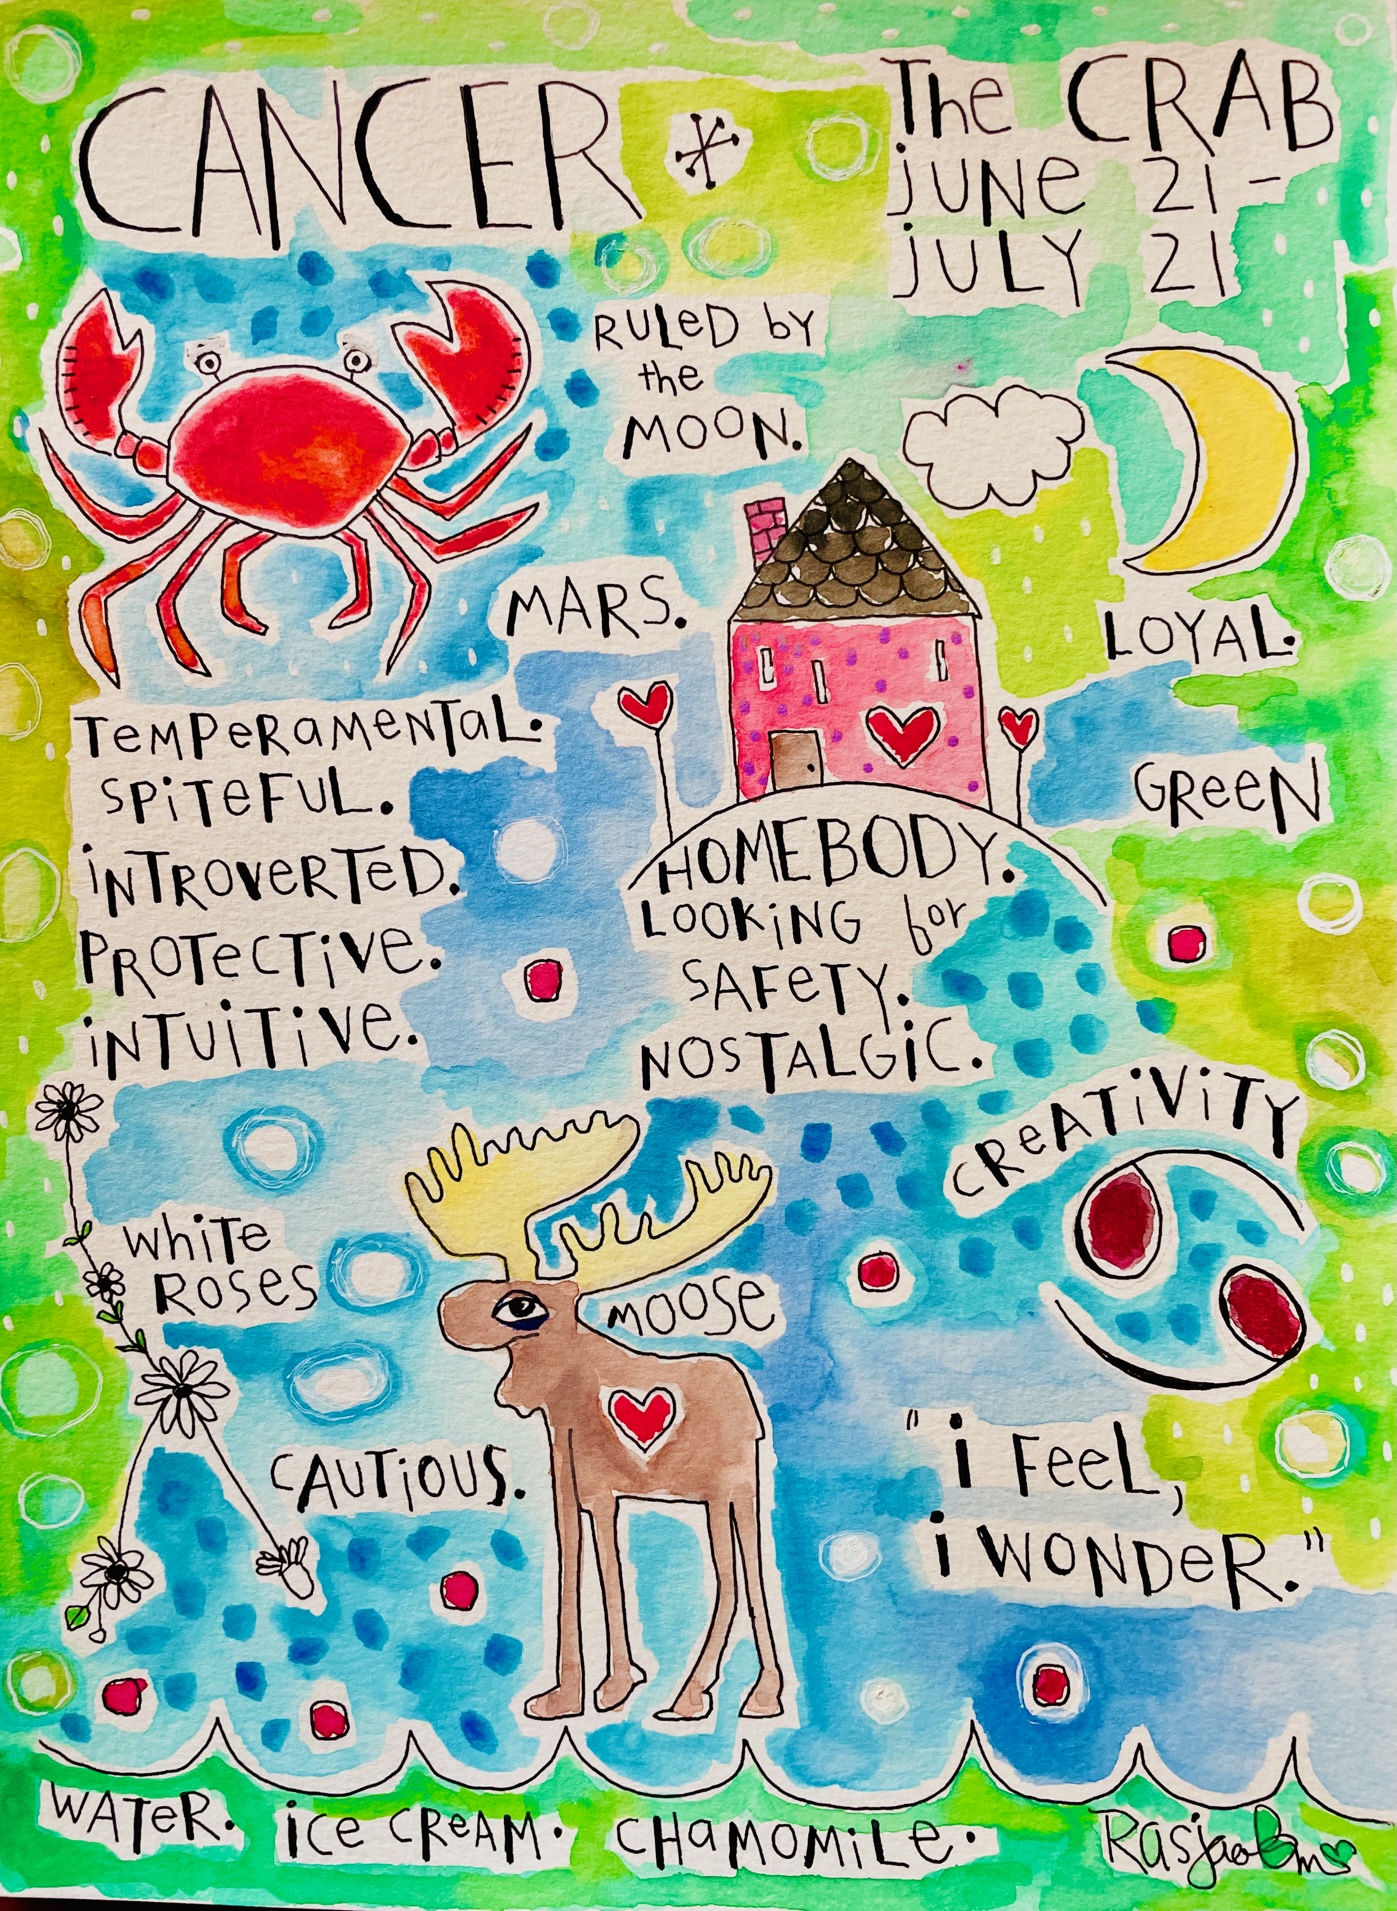 CANCER
The CRAB
jUNe 21 -
jULY 21
RULeD bY
the
MOON.
MARS.
LOYAL.
TeMPeRaMeNTaL.
SPiTeFUL.
iNTROVeRTeD.
PROTeCTiVe.
iNTUiTiVe.
GReeN
HOMEBODY.
LOOKiNG for
SAFeTY.
NOSTALGiC.
CReATiViTY
White
ROSeS
MOOSe
CAUTiOUS.
"i FeeL,
i WONDeR."
WATeR. iCe CReAM. CHaMOMiLe.